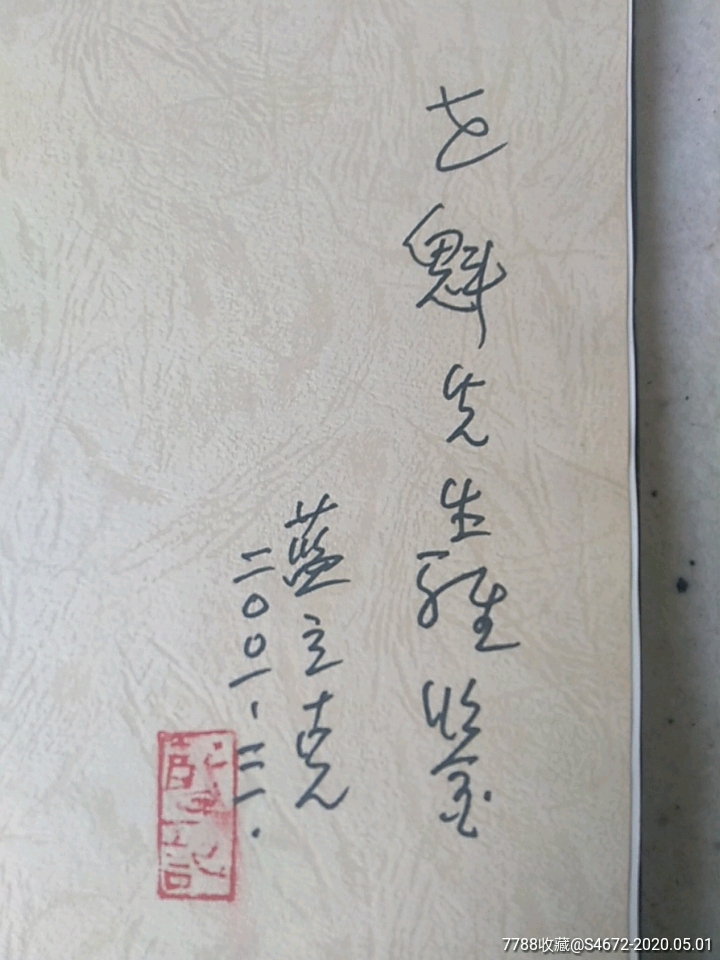 魁先生雅鉴
蓝立克
二〇〇一、
7788收藏@S4672-2020.05.01